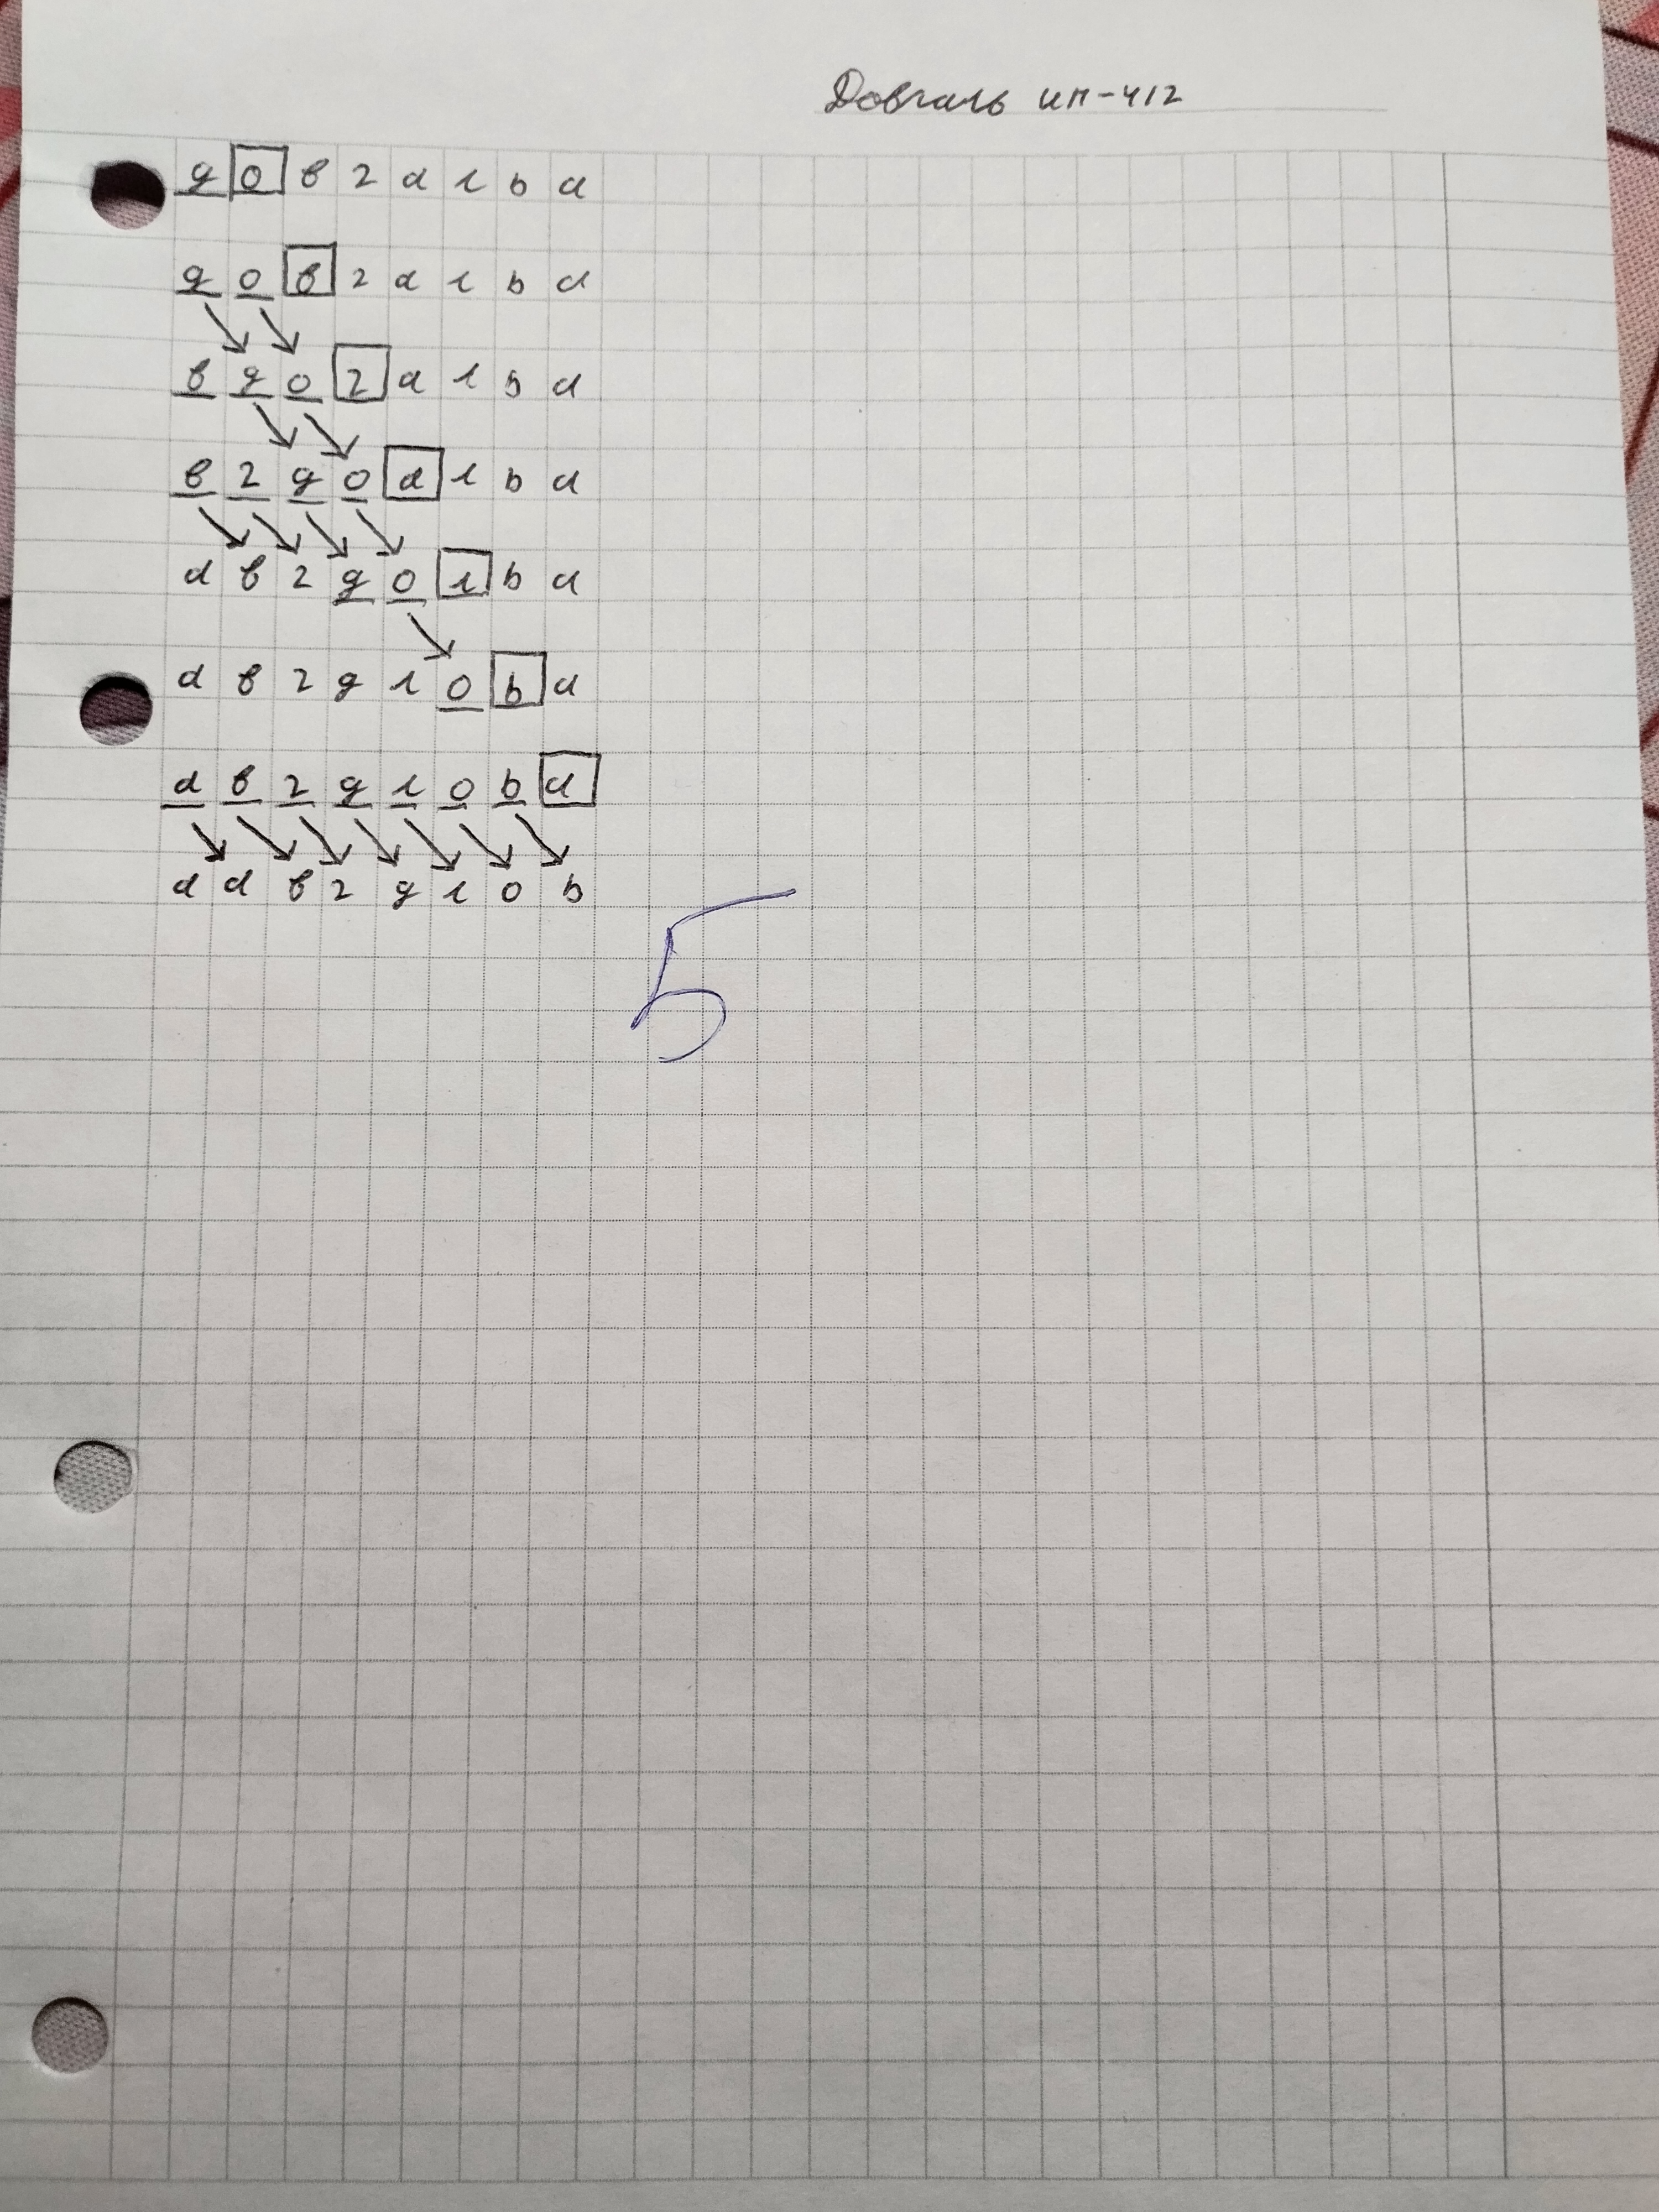 Довгаль ип-412
д о в г а л ь а
д о в г а л ь а
в д о г а л ь а
в г д о а л ь а
а в г д о л ь а
а в г д л о ь а
а в г д л о ь а
а а в г д л о ь
5